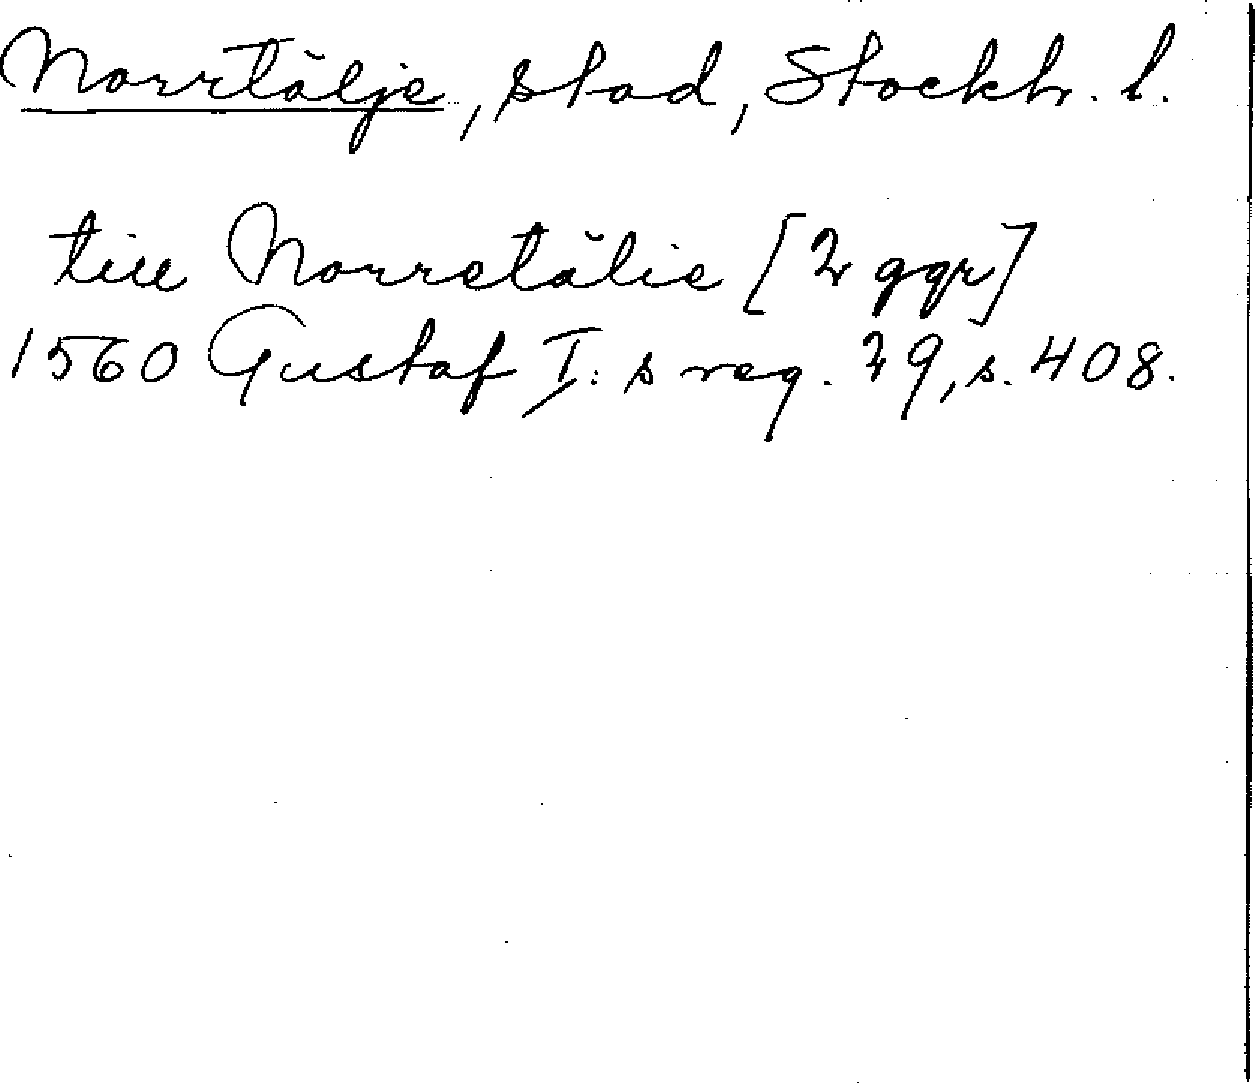 Norrtälje, stad, Stockh. l.
till Norretälie [2 ggr]
1560 Gustaf I:s reg. 29, s. 408.